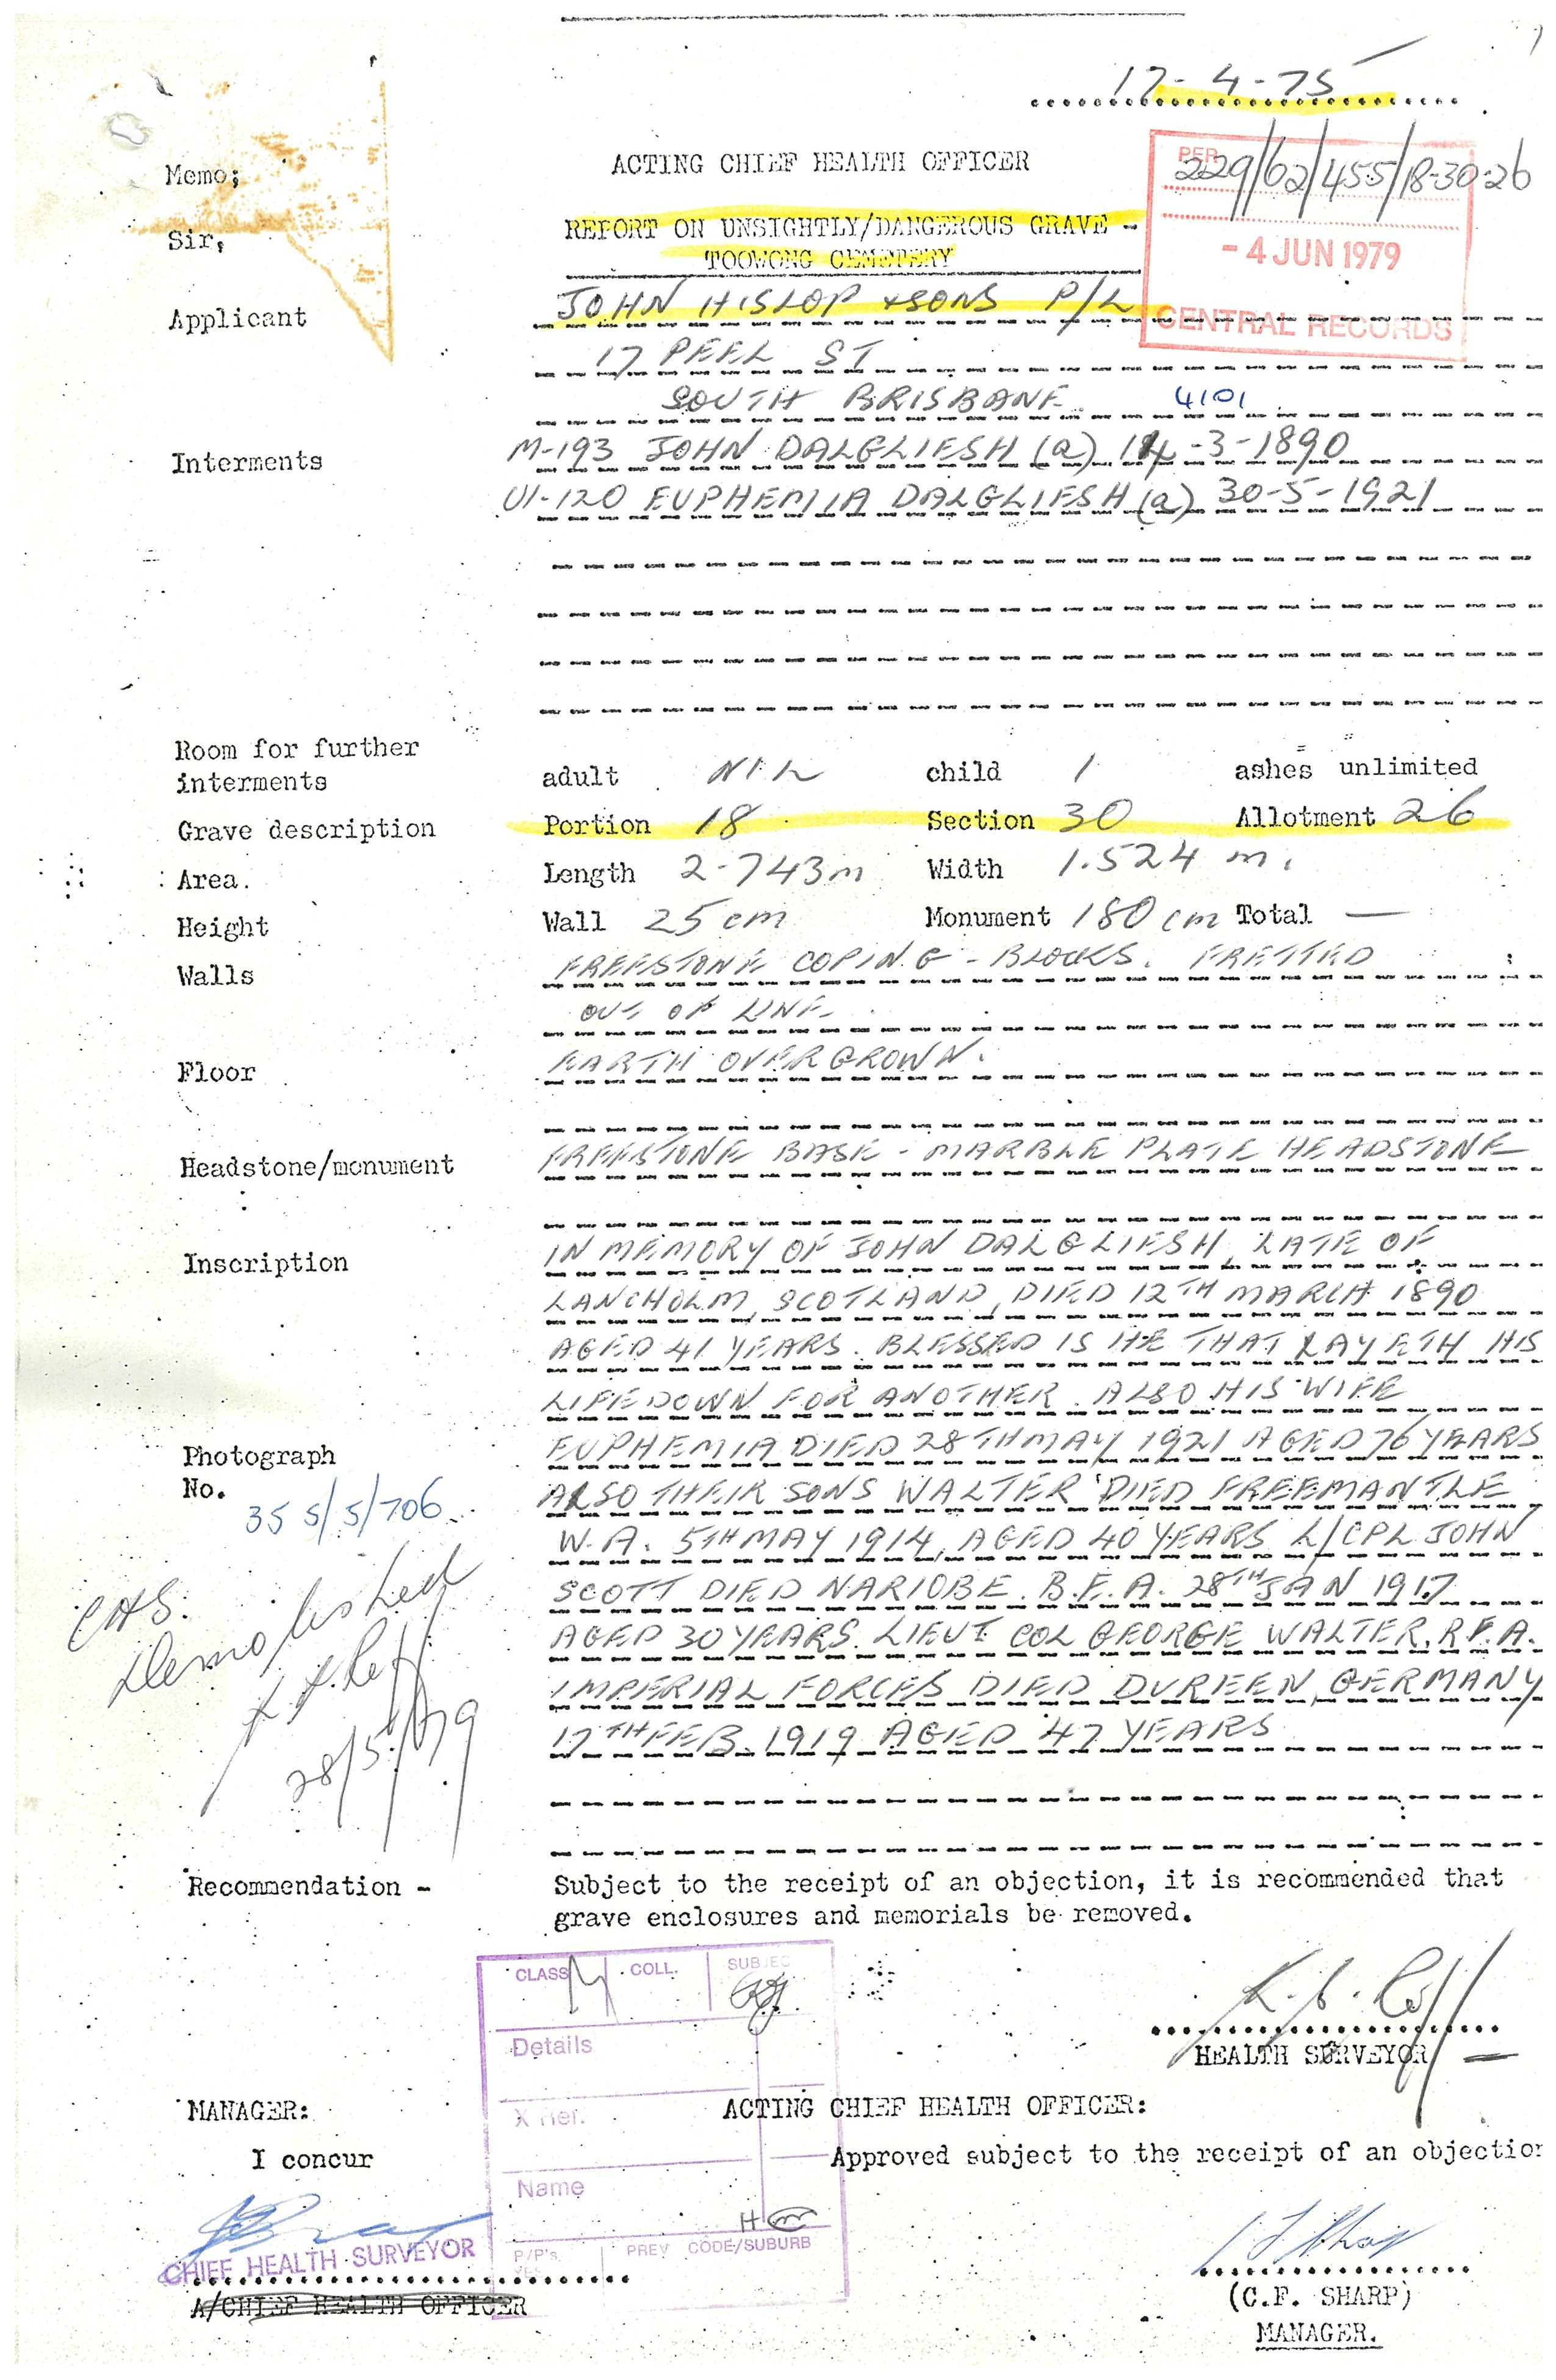 17-4-75
ACTING CHIEF HEALTH OFFICER
PER
229/62/455/18-30-26
Memo;
REPORT ON UNSIGHTLY/DANGEROUS GRAVE -
Sir,
TOOWONG CEMETERY
- 4 JUN 1979
CENTRAL RECORDS
Applicant JOHN HISLOP & SONS P/L
17 PEEL ST
SOUTH BRISBANE 4101
Interments M-193 JOHN DALGLIESH (a) 14-3-1890
U1-120 EUPHEMIA DALGLIESH (a) 30-5-1921
Room for further
interments adult NIL child 1 ashes unlimited
Grave description Portion 18 Section 30 Allotment 26
Area. Length 2.743m Width 1.524 m.
Height Wall 25 cm Monument 180 cm Total —
Walls FREESTONE COPING - BLOCKS. FRETTED
OUT OF LINE
Floor EARTH OVERGROWN.
Headstone/monument FREESTONE BASE - MARBLE PLATE HEADSTONE
Inscription IN MEMORY OF JOHN DALGLIESH, LATE OF
LANCHOLM, SCOTLAND, DIED 12TH MARCH 1890
AGED 41 YEARS. BLESSED IS HE THAT LAYETH HIS
LIFE DOWN FOR ANOTHER. ALSO HIS WIFE
Photograph EUPHEMIA DIED 28TH MAY 1921 AGED 76 YEARS
No. ALSO THEIR SONS WALTER DIED FREEMANTLE
35 5/5/706
W.A. 5TH MAY 1914, AGED 40 YEARS L/CPL JOHN
SCOTT DIED NARIOBE. B.E.A. 28TH JAN 1917
AGED 30 YEARS. LIEUT COL GEORGE WALTER. R.F.A.
IMPERIAL FORCES DIED DUREEN, GERMANY
17TH FEB. 1919 AGED 47 YEARS
CHS.
Demolished
28/5/79
Recommendation - Subject to the receipt of an objection, it is recommended that
grave enclosures and memorials be removed.
CLASS COLL. SUBJEC
Details
HEALTH SURVEYOR
MANAGER: X Ref. ACTING CHIEF HEALTH OFFICER:
I concur Approved subject to the receipt of an objection
Name
CHIEF HEALTH SURVEYOR
P/P's PREV CODE/SUBURB
A/CHIEF HEALTH OFFICER
(C.F. SHARP)
MANAGER.